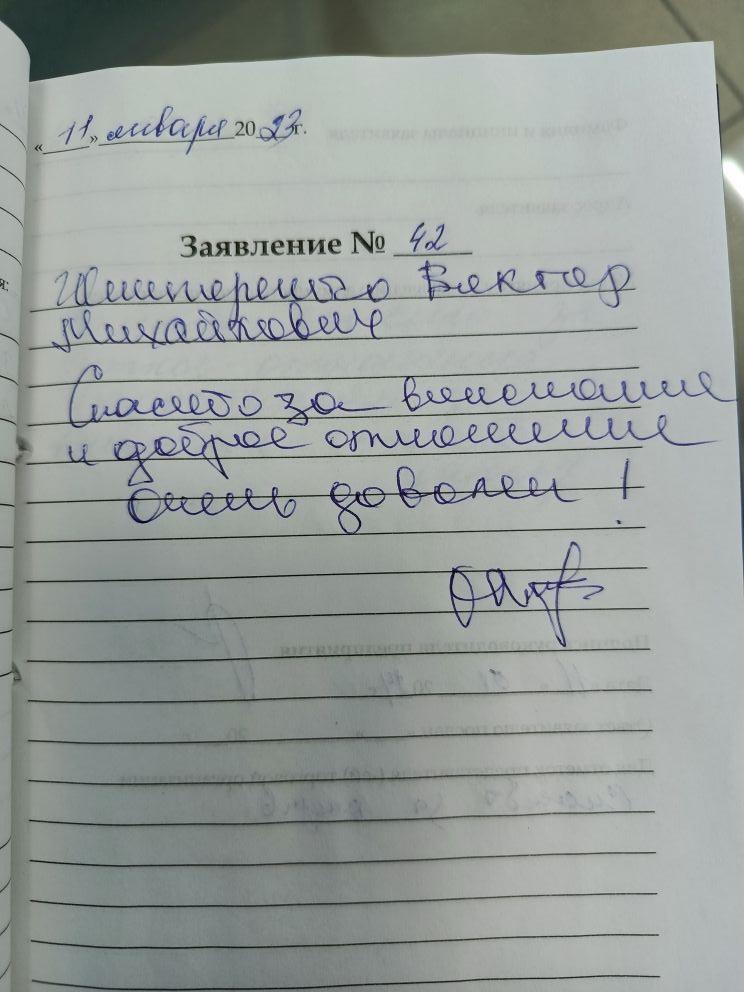 «11» января 2023г.
Заявление № 42
Виктор
Михайлович
Спасибо за внимание
и доброе отношение
Очень доволен!